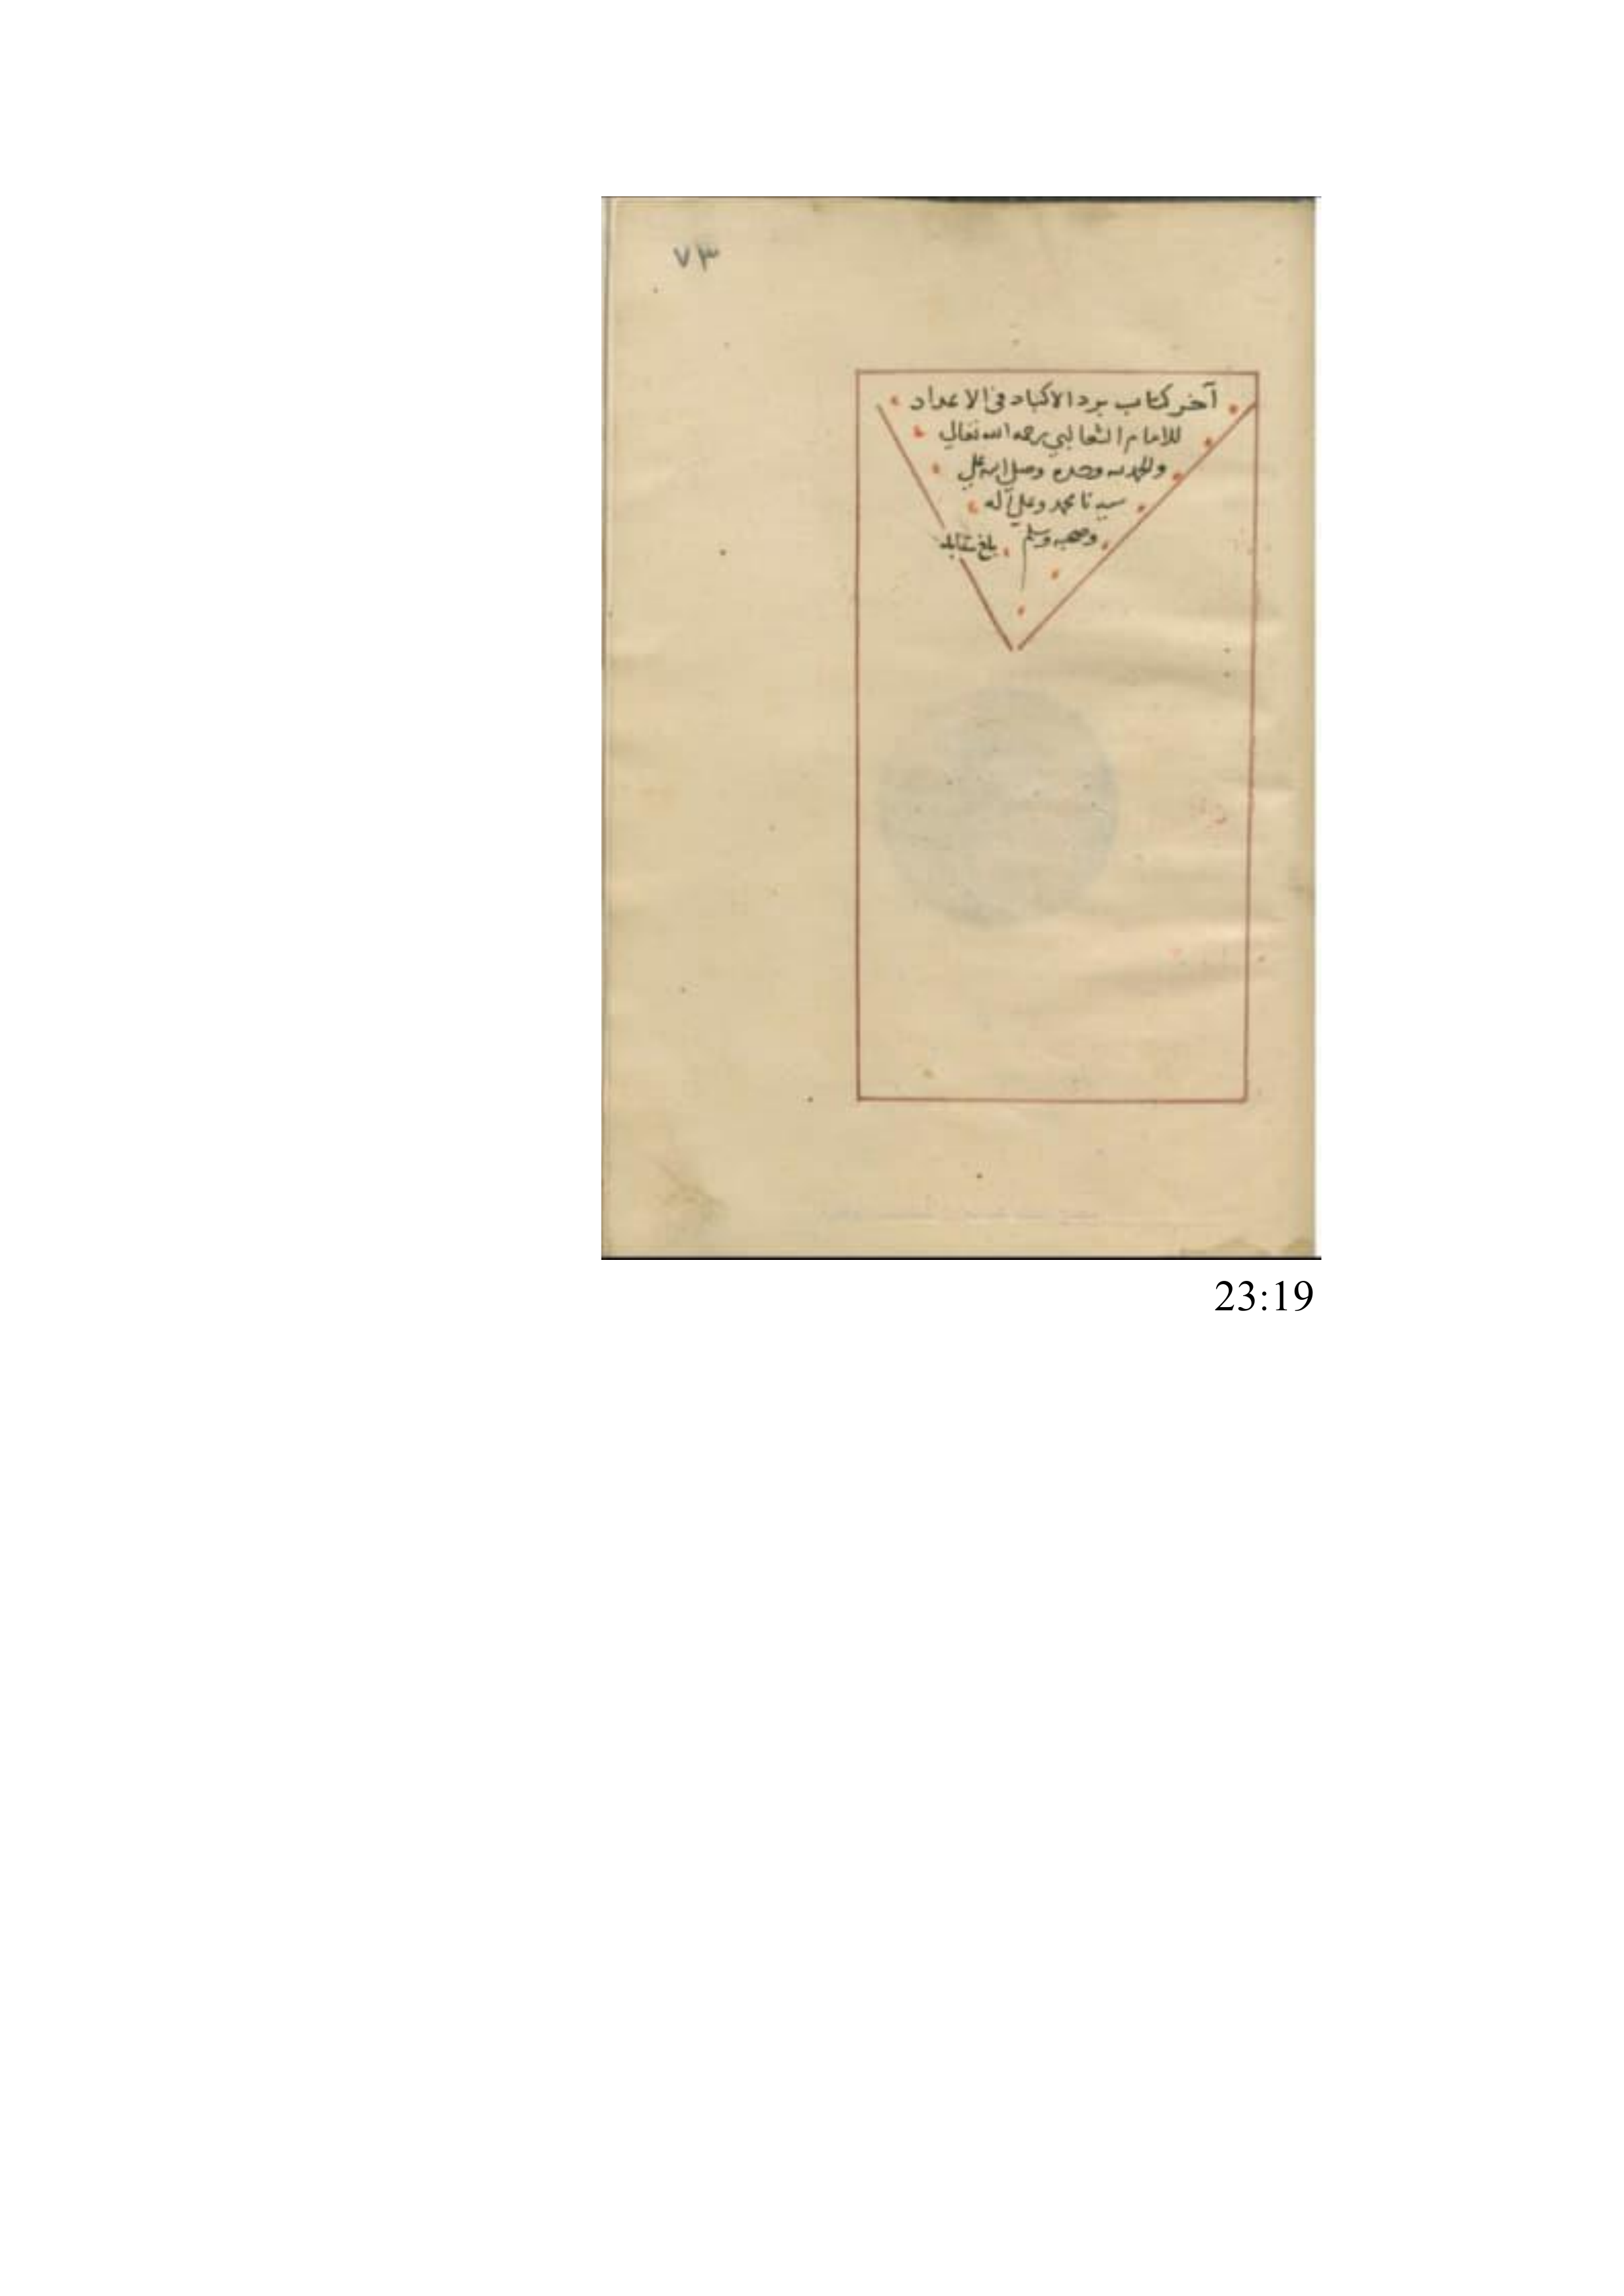 ٧٣
آخر كتاب برد الاكباد في الاعداد
للامام الثعالبي رحمه الله تعالي
والحمد لله وحده وصلي الله علي
سيدنا محمد وعلي آله
وصحبه وسلم
بلغ مقابله
23:19